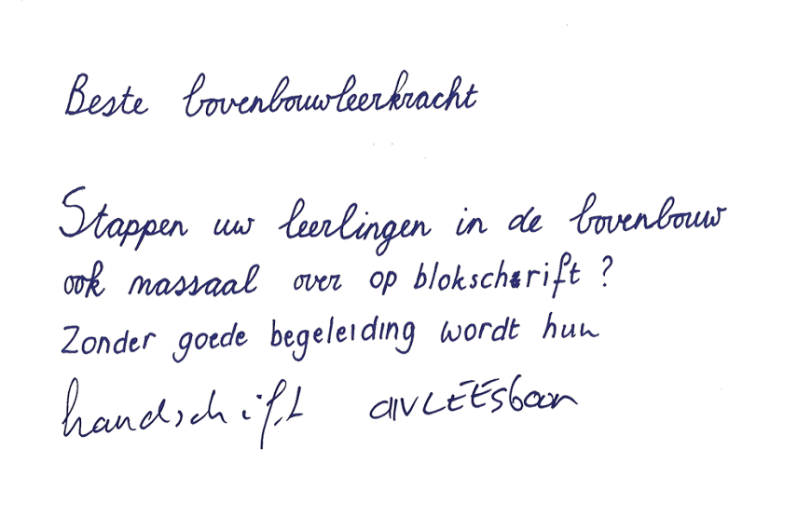 Beste bovenbouwleerkracht
Stappen uw leerlingen in de bovenbouw
ook massaal over op blokschrift?
Zonder goede begeleiding wordt hun
handschrift onLEESbaar